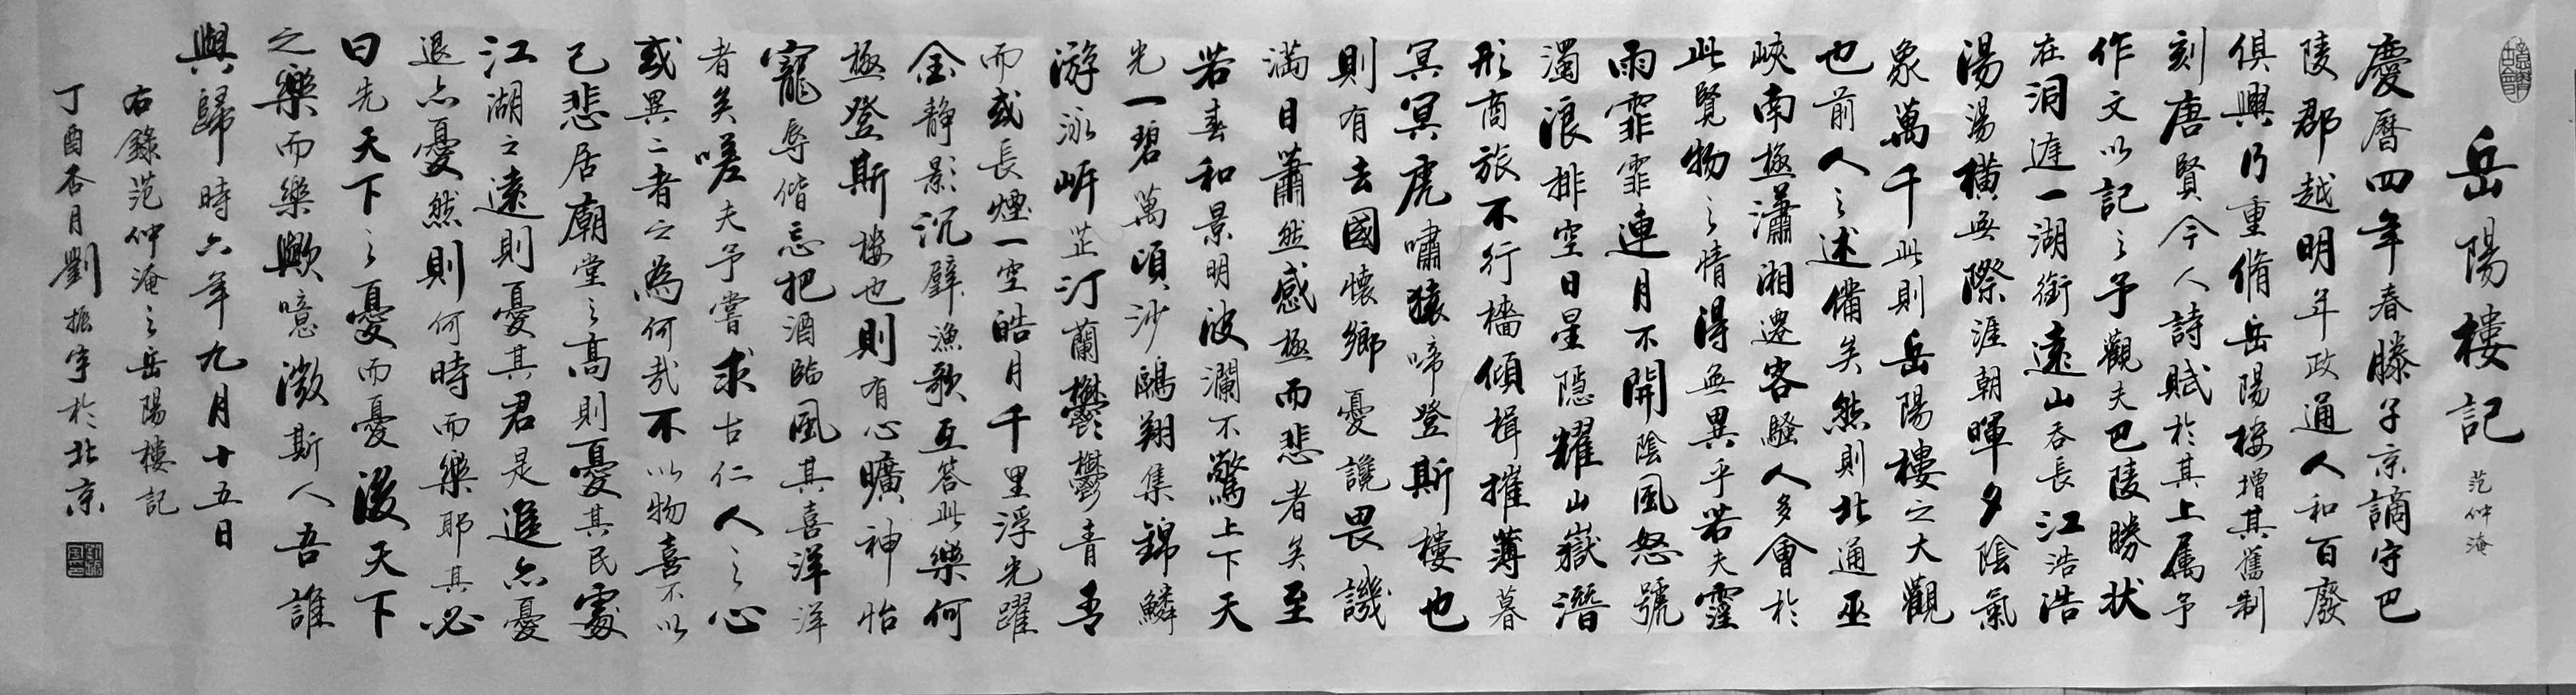 岳陽樓記 范仲淹
慶曆四年春滕子京謫守巴
陵郡越明年政通人和百廢
俱興乃重脩岳陽樓增其舊制
刻唐賢今人詩賦於其上属予
作文以記之予觀夫巴陵勝状
在洞庭一湖銜遠山吞長江浩浩
湯湯橫無際涯朝暉夕陰氣
象萬千此則岳陽樓之大觀
也前人之述備矣然則北通巫
峽南極瀟湘遷客騷人多會於
此覽物之情得無異乎若夫霪
雨霏霏連月不開陰風怒號
濁浪排空日星隱耀山嶽潛
形商旅不行檣傾楫摧薄暮
冥冥虎嘯猿啼登斯樓也
則有去國懷鄉憂讒畏譏
滿目蕭然感極而悲者矣至
若春和景明波瀾不驚上下天
光一碧萬頃沙鷗翔集錦鱗
游泳岸芷汀蘭鬱鬱青青
而或長煙一空皓月千里浮光躍
金靜影沉璧漁歌互答此樂何
極登斯樓也則有心曠神怡
寵辱偕忘把酒臨風其喜洋洋
者矣嗟夫予嘗求古仁人之心
或異二者之為何哉不以物喜不以
己悲居廟堂之高則憂其民處
江湖之遠則憂其君是進亦憂
退亦憂然則何時而樂耶其必
曰先天下之憂而憂後天下
之樂而樂歟噫微斯人吾誰
與歸時六年九月十五日
右錄范仲淹之岳陽樓記
丁酉杏月劉振宇於北京